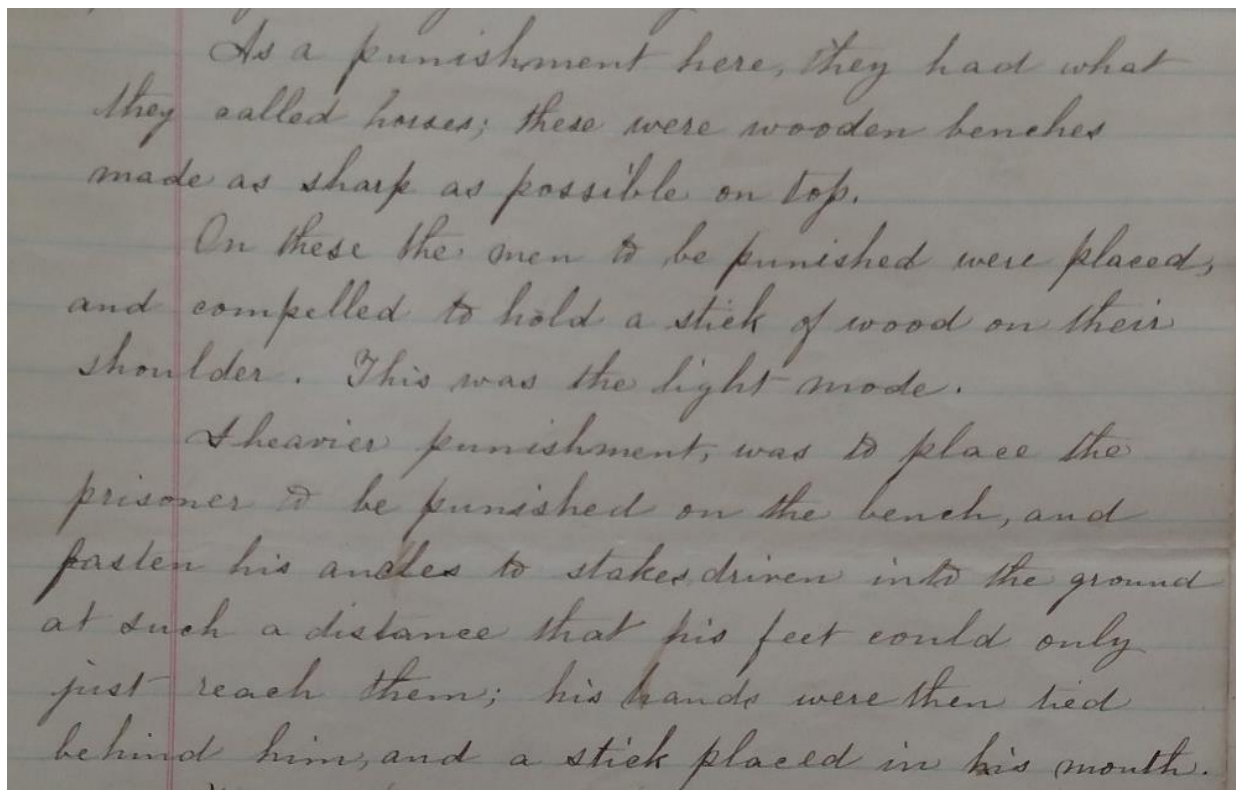 As a punishment here, they had what
they called horses; these were wooden benches
made as sharp as possible on top.
On these the men to be punished were placed,
and compelled to hold a stick of wood on their
shoulder. This was the light mode.
A heavier punishment, was to place the
prisoner to be punished on the bench, and
fasten his ancles to stakes driven into the ground
at such a distance that his feet could only
just reach them; his hands were then tied
behind him, and a stick placed in his mouth.